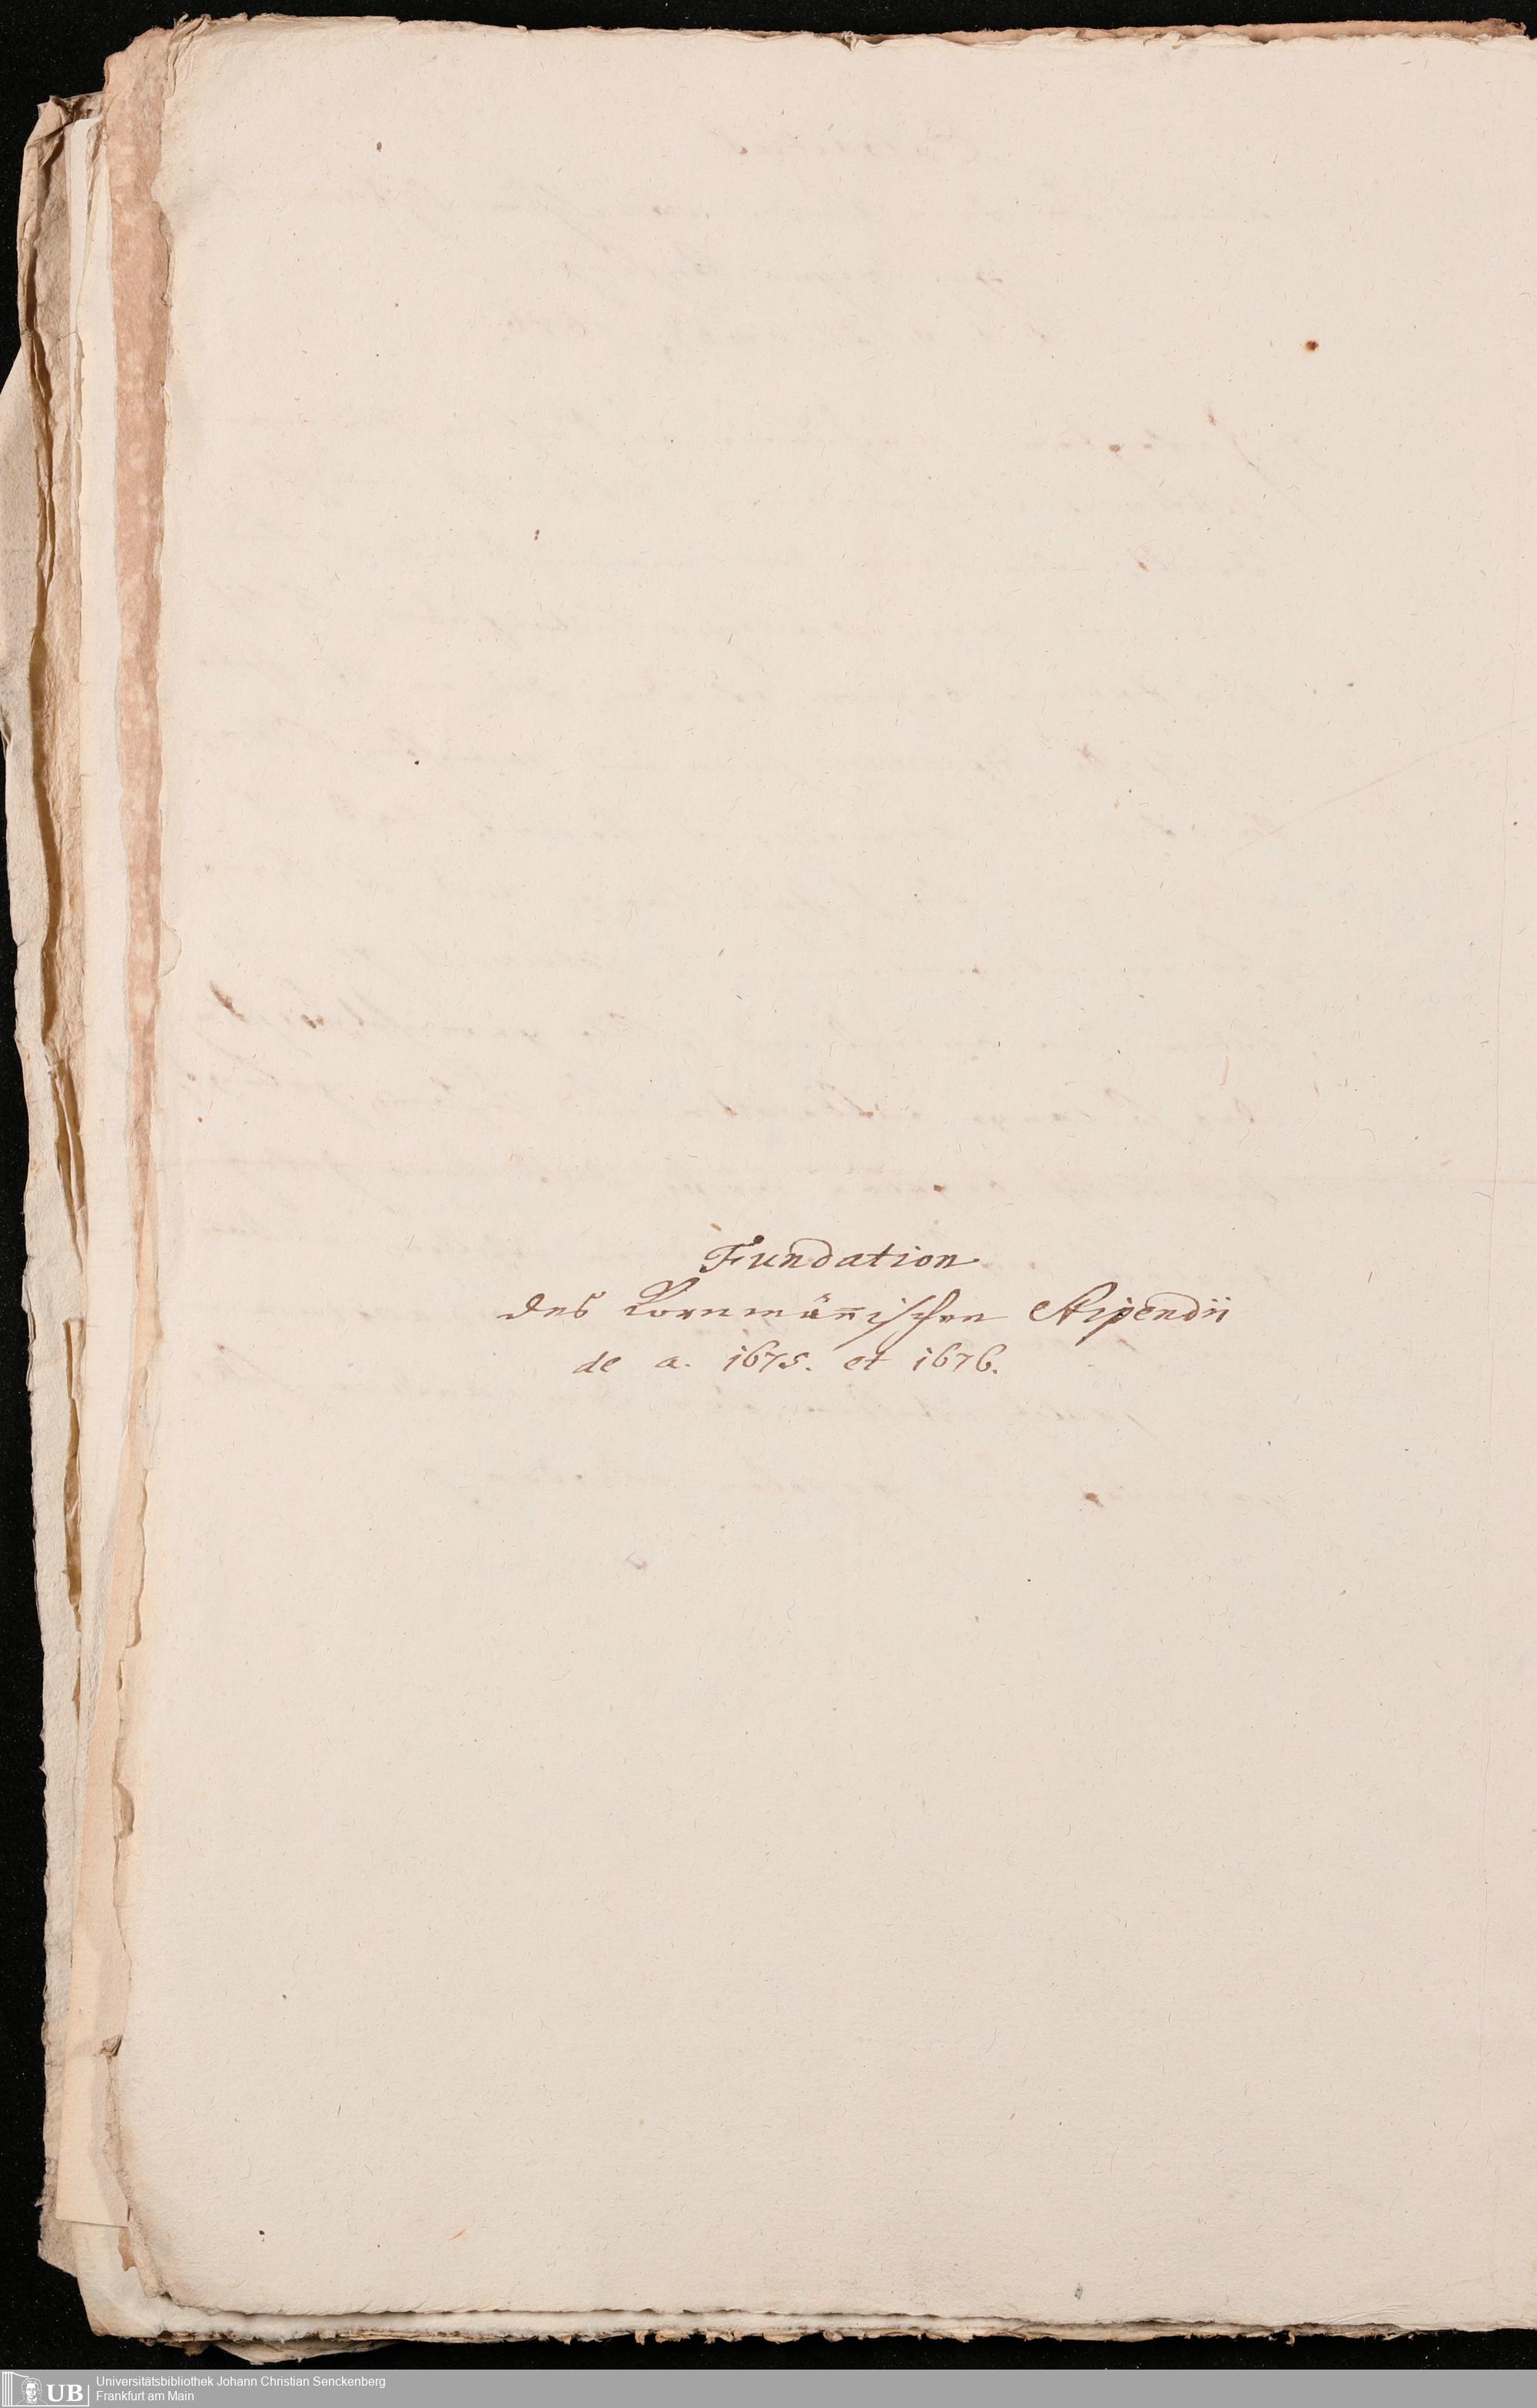 Fundation
des Kornmän̄ischen Stipendii
de a. 1675. et 1676.
UB
Universitätsbibliothek Johann Christian Senckenberg
Frankfurt am Main